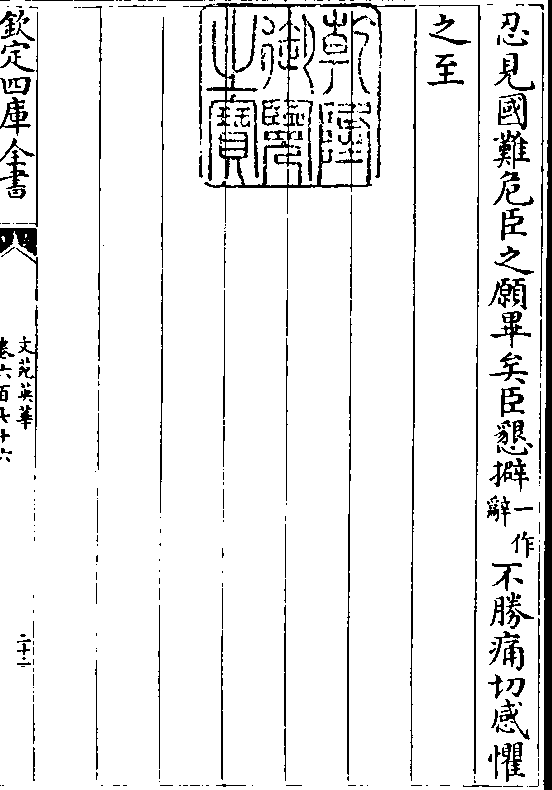 忍見國難危臣之願畢矣臣懇擗一作辭不勝痛切感懼
之至
乾隆御覽之寶
欽定四庫全書
文苑英華
卷六百七十六
二十二